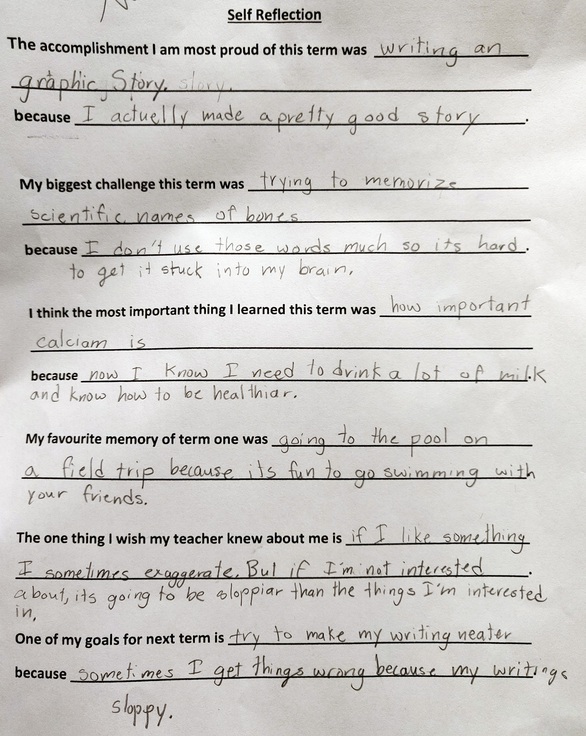 Self Reflection
The accomplishment I am most proud of this term was writing an
graphic Story. story.
because I actuelly made a pretty good story.
My biggest challenge this term was trying to memorize
scientific names of bones
because I don't use those words much so its hard.
to get it stuck into my brain.
I think the most important thing I learned this term was how important
calciam is
because now I know I need to drink a lot of milk.
and know how to be healthiar.
My favourite memory of term one was going to the pool on
a field trip because its fun to go swimming with
your friends.
The one thing I wish my teacher knew about me is if I like something
I sometimes exaggerate. But if I'm not interested.
about, its going to be sloppiar than the things I'm interested
in,
One of my goals for next term is try to make my writing neater
because sometimes I get things wrong because my writings
sloppy.